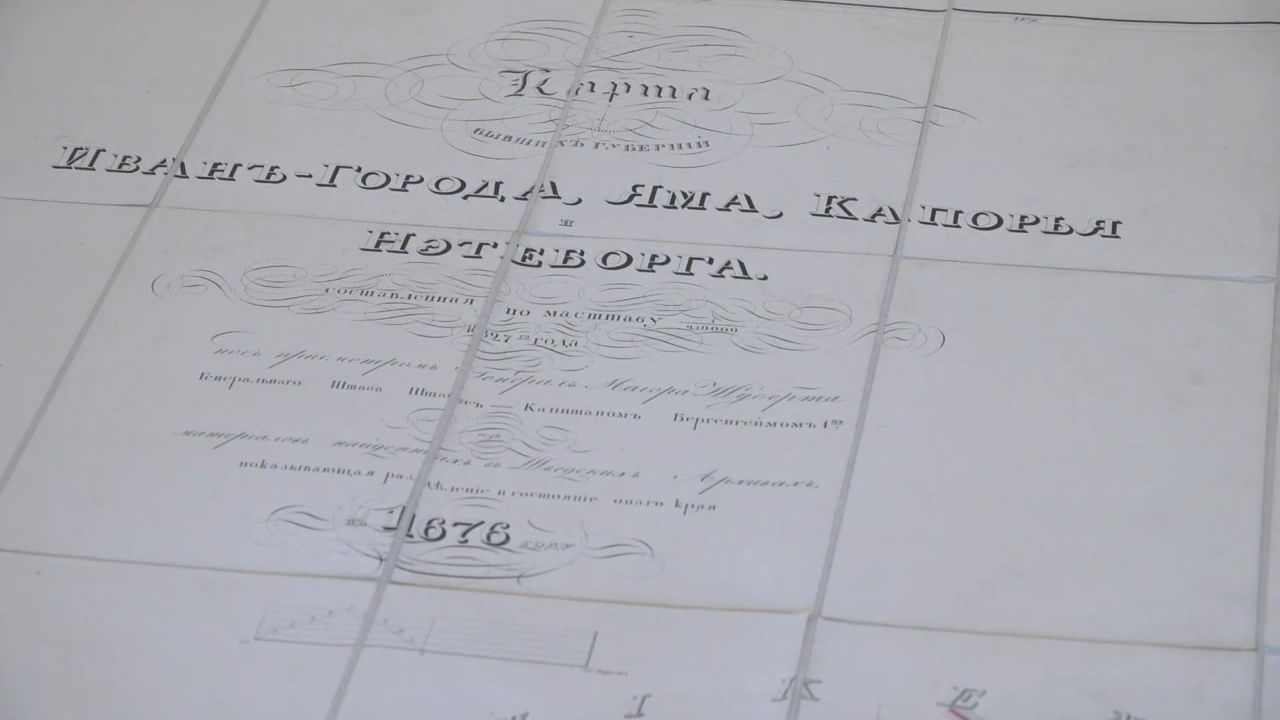 Карта
БЫВШИХЪ ГУБЕРНІЙ
ИВАНЪ-ГОРОДА, ЯМА, КАПОРЬЯ
И
НЭТЕБОРГА.
составленная по масштабу 1/210000
1827го года
подъ присмотромъ Генералъ Маіора Шуберта
Генеральнаго Штаба Штабсъ — Капитаномъ Бергенгеймомъ 1мъ
изъ
матеріаловъ найденныхъ въ Шведскихъ Архивахъ,
показывающая раздѣленіе и состояніе онаго края
въ 1676 году